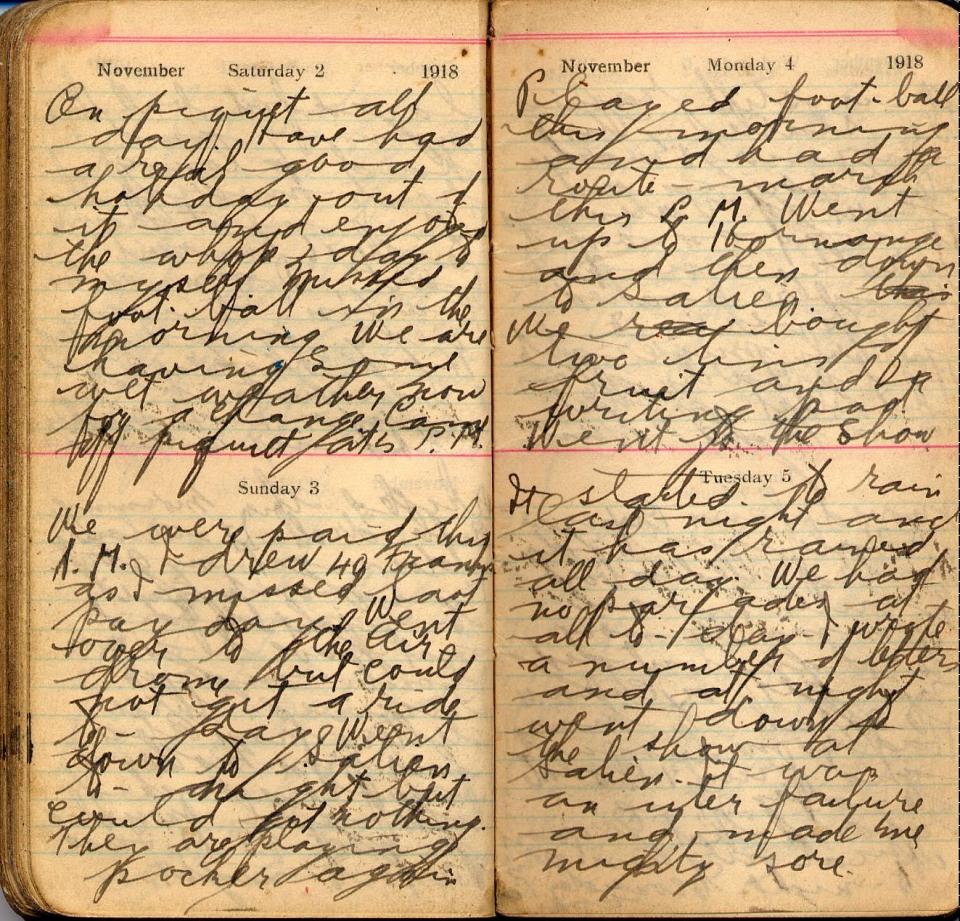 November Saturday 2 1918
On piquet all
day. Have had
a real good
holiday out of
it and enjoyed
the whole day to
myself missed
foot-ball in the
morning We are
having some
wet weather now
for a change Came
off piquet at 5 P.M.
Sunday 3
We were paid this
A.M. I drew 40 Francs
as I missed last
pay day Went
over to the Air
drome but could
not get a ride
to-day Went
down to Salien
to-night but
could got nothing.
They are playing
pocker again
November Monday 4 1918
Played foot-ball
this morning
and had a
route-march
this P.M. Went
up to
and then down
to Salien
We bought
two tins
fruit and a
writing pad
Went to the show
Tuesday 5
It started to rain
last night and
it has rained
all day. We had
no parades at
all to-day I wrote
a number of letters
and at night
went down to
the show at
Salien. it was
an uter failure
and made me
mighty sore.